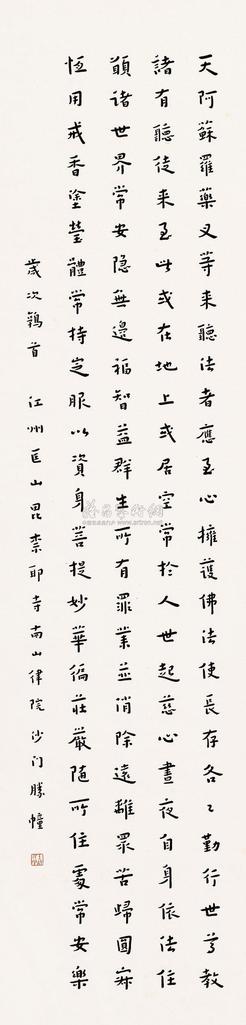 天阿蘇羅藥叉等来聽法者應至心擁護佛法使長存各々勤行世尊教
諸有聽徒来至此或在地上或居空常於人世起慈心晝夜自身依法住
願諸世界常安隐無邊福智益群生所有罪業並消除遠離眾苦歸圓寂
恆用戒香塗瑩體常持定服以資身菩提妙華徧莊嚴随所住處常安樂
歲次鶉首 江州匡山毘柰耶寺南山律院沙门勝幢